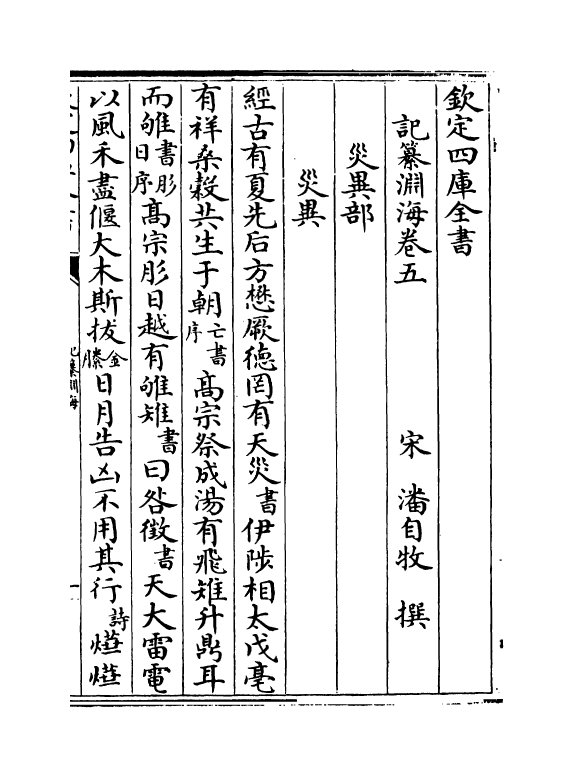 欽定四庫全書
記纂淵海卷五
宋 潘自牧 撰
災異部
災異
經古有夏先后方懋厥德罔有天災書伊陟相太戊亳
有祥桑榖共生于朝亡書序高宗祭成湯有飛雉升鼎耳
而雊書肜日序高宗肜日越有雊雉書曰咎徵書天大雷電
以風禾盡偃大木斯拔金縢日月告凶不用其行詩爗爗
記纂淵海
一